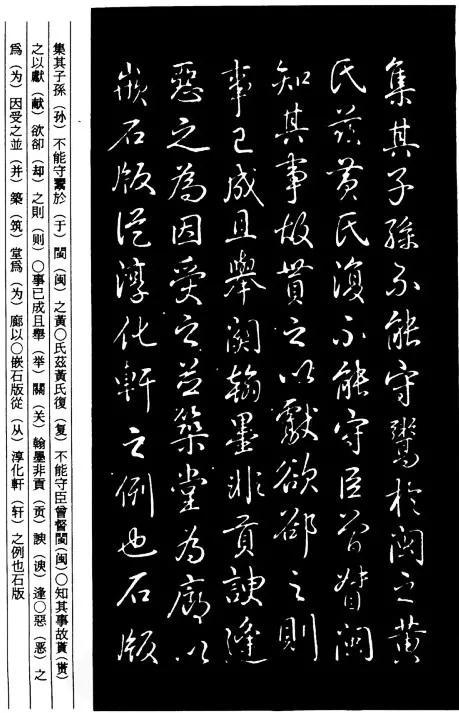 集其子孫不能守鬻於閩之黃
氏茲黃氏復不能守臣曾督閩
知其事故貰之以獻欲卻之則
事已成且舉關翰墨非貢諛逢
惡之為因受之並築堂為廊以
嵌石版從淳化軒之例也石版
集其子孫（孙）不能守鬻於（于）閩（闽）之黃〇氏茲黃氏復（复）不能守臣曾督閩（闽）〇知其事故貰（贳）
之以獻（献）欲卻（却）之則（则）〇事已成且舉（举）關（关）翰墨非貢（贡）諛（谀）逢〇惡（恶）之
爲（为）因受之並（并）築（筑）堂爲（为）廊以〇嵌石版從（从）淳化軒（轩）之例也石版